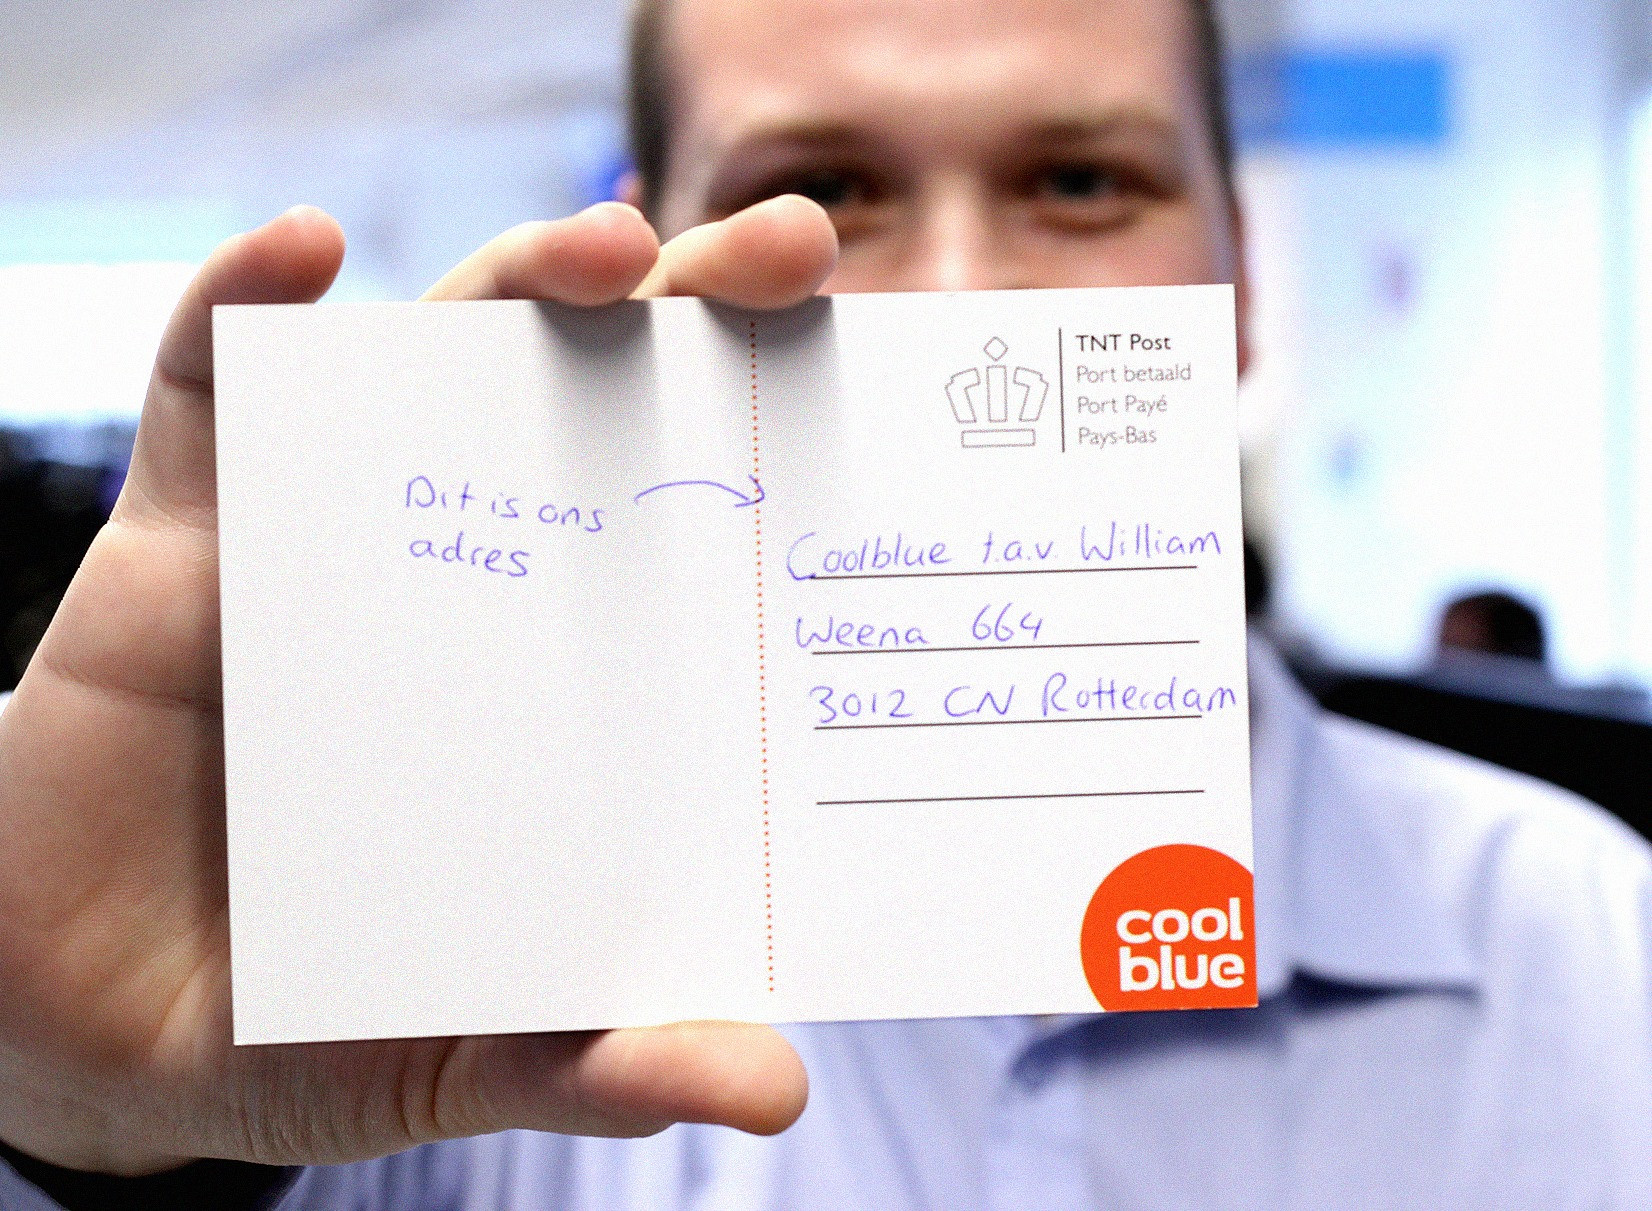 TNT Post
Port betaald
Port Payé
Pays-Bas
Dit is ons
adres
Coolblue t.a.v. William
Weena 664
3012 CN Rotterdam
cool
blue